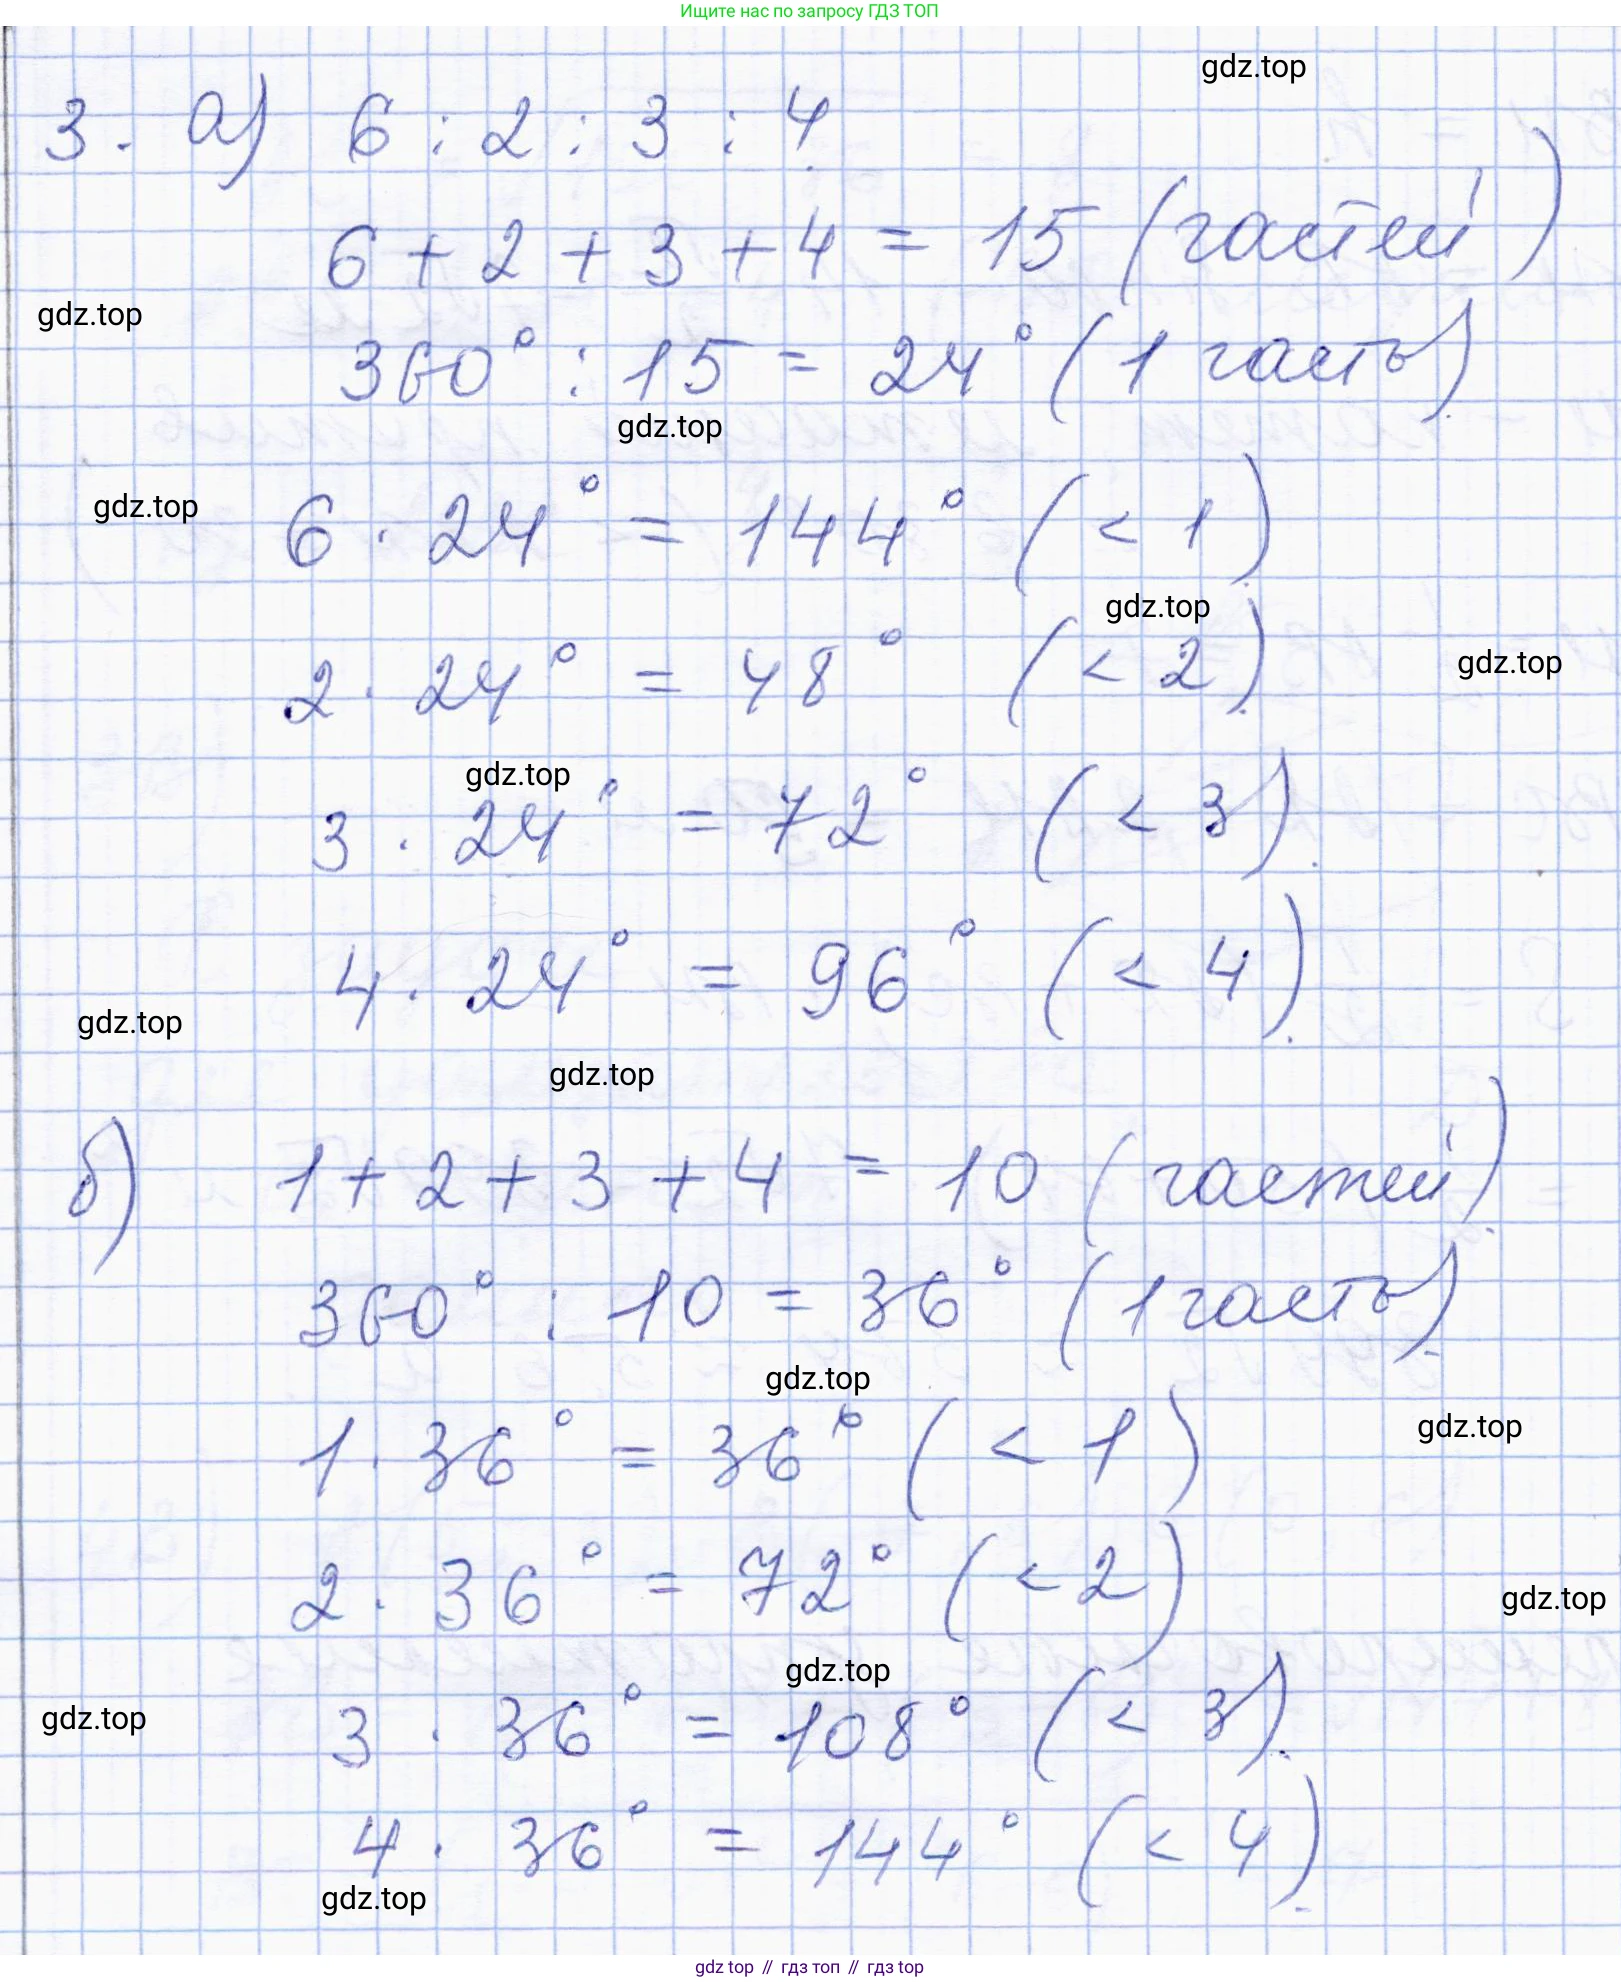 Ищите нас по запросу ГДЗ ТОП
gdz.top
3. а) 6 : 2 : 3 : 4
6 + 2 + 3 + 4 = 15 (частей)
gdz.top
360° : 15 = 24° (1 часть)
gdz.top
gdz.top
6 · 24° = 144° (< 1)
gdz.top
2 · 24° = 48° (< 2)
gdz.top
gdz.top
3 · 24° = 72° (< 3)
4 · 24° = 96° (< 4)
gdz.top
gdz.top
б) 1 + 2 + 3 + 4 = 10 (частей)
360° : 10 = 36° (1 часть)
gdz.top
gdz.top
1 · 36° = 36° (< 1)
2 · 36° = 72° (< 2)
gdz.top
gdz.top
gdz.top
3 · 36° = 108° (< 3)
4 · 36° = 144° (< 4)
gdz.top
gdz top // гдз топ // гдз top